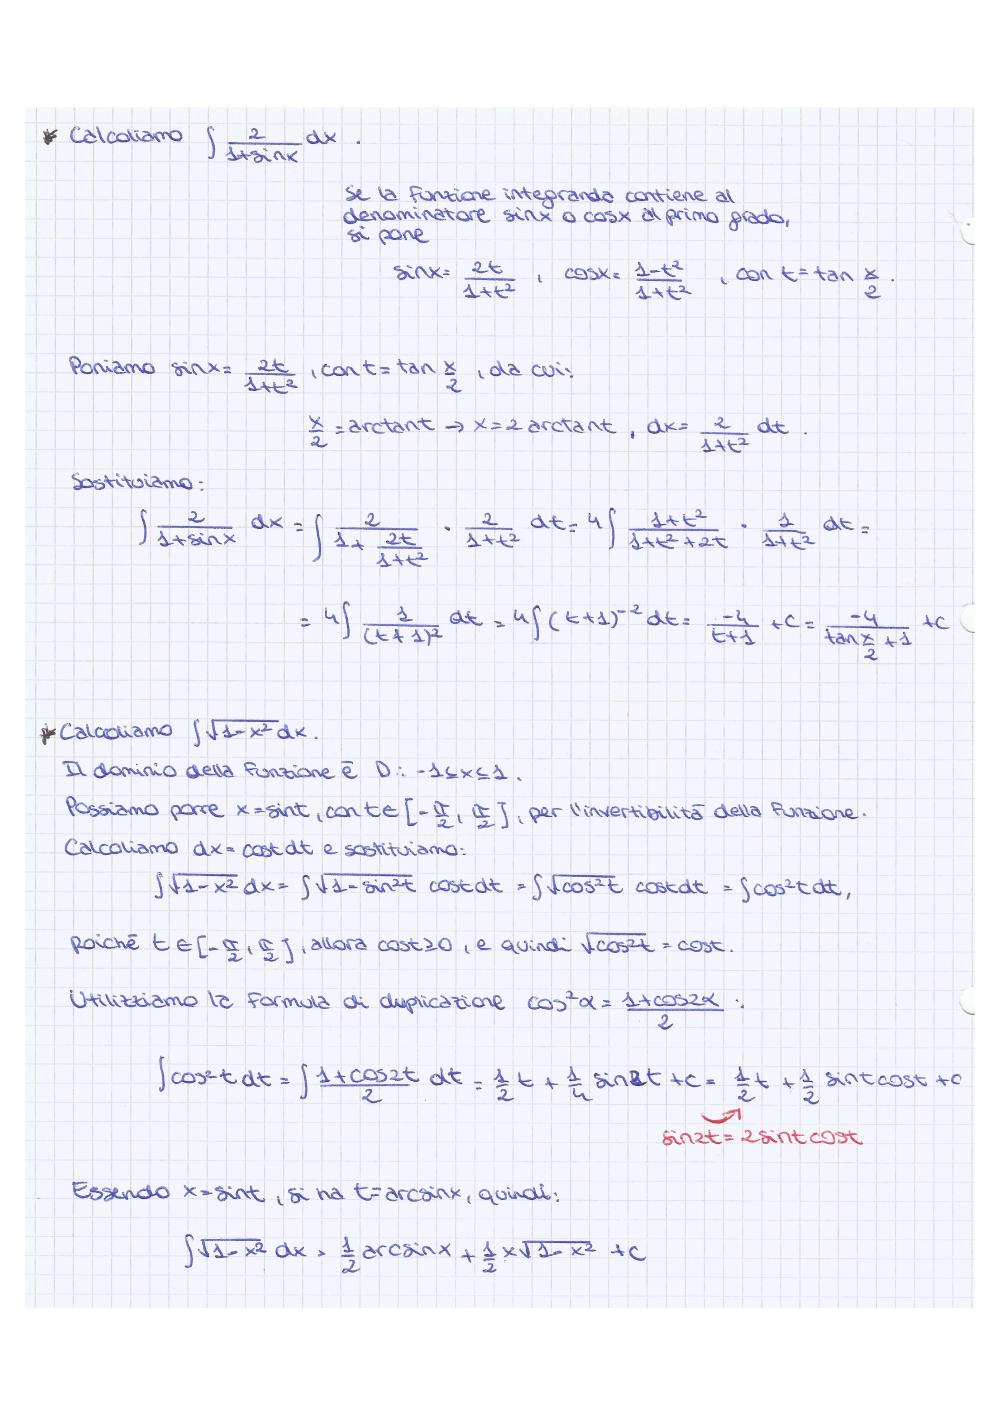 * Calcoliamo ∫ 2/(1+sinx) dx .
Se la funzione integranda contiene al
denominatore sinx o cosx al primo grado,
si pone
sinx= 2t/(1+t²) , cosx= (1-t²)/(1+t²) , con t=tan x/2 .
Poniamo sinx= 2t/(1+t²) , con t=tan x/2 , da cui:
x/2 =arctant → x=2 arctant , dx= 2/(1+t²) dt .
Sostituiamo:
∫ 2/(1+sinx) dx = ∫ 2/(1+ 2t/(1+t²)) · 2/(1+t²) dt= 4∫ (1+t²)/(1+t²+2t) · 1/(1+t²) dt =
= 4∫ 1/(t+1)² dt = 4∫(t+1)⁻² dt= -4/(t+1) +c = -4/(tan x/2 +1) +c
* Calcoliamo ∫√(1-x²) dx.
Il dominio della funzione è D: -1≤x≤1.
Possiamo porre x=sint, con t∈[-π/2, π/2], per l'invertibilità della funzione.
Calcoliamo dx= cost dt e sostituiamo:
∫√(1-x²) dx= ∫√(1-sin²t) cost dt = ∫√(cos²t) cost dt = ∫cos²t dt,
poiché t∈[-π/2, π/2], allora cost≥0, e quindi √(cos²t) = cost.
Utilizziamo la formula di duplicazione cos²α= (1+cos2α)/2 :
∫cos²t dt = ∫ (1+cos2t)/2 dt = 1/2 t + 1/4 sin2t +c = 1/2 t + 1/2 sint cost +c
sin2t = 2sint cost
Essendo x=sint, si ha t=arcsinx, quindi:
∫√(1-x²) dx = 1/2 arcsinx + 1/2 x√(1-x²) +c